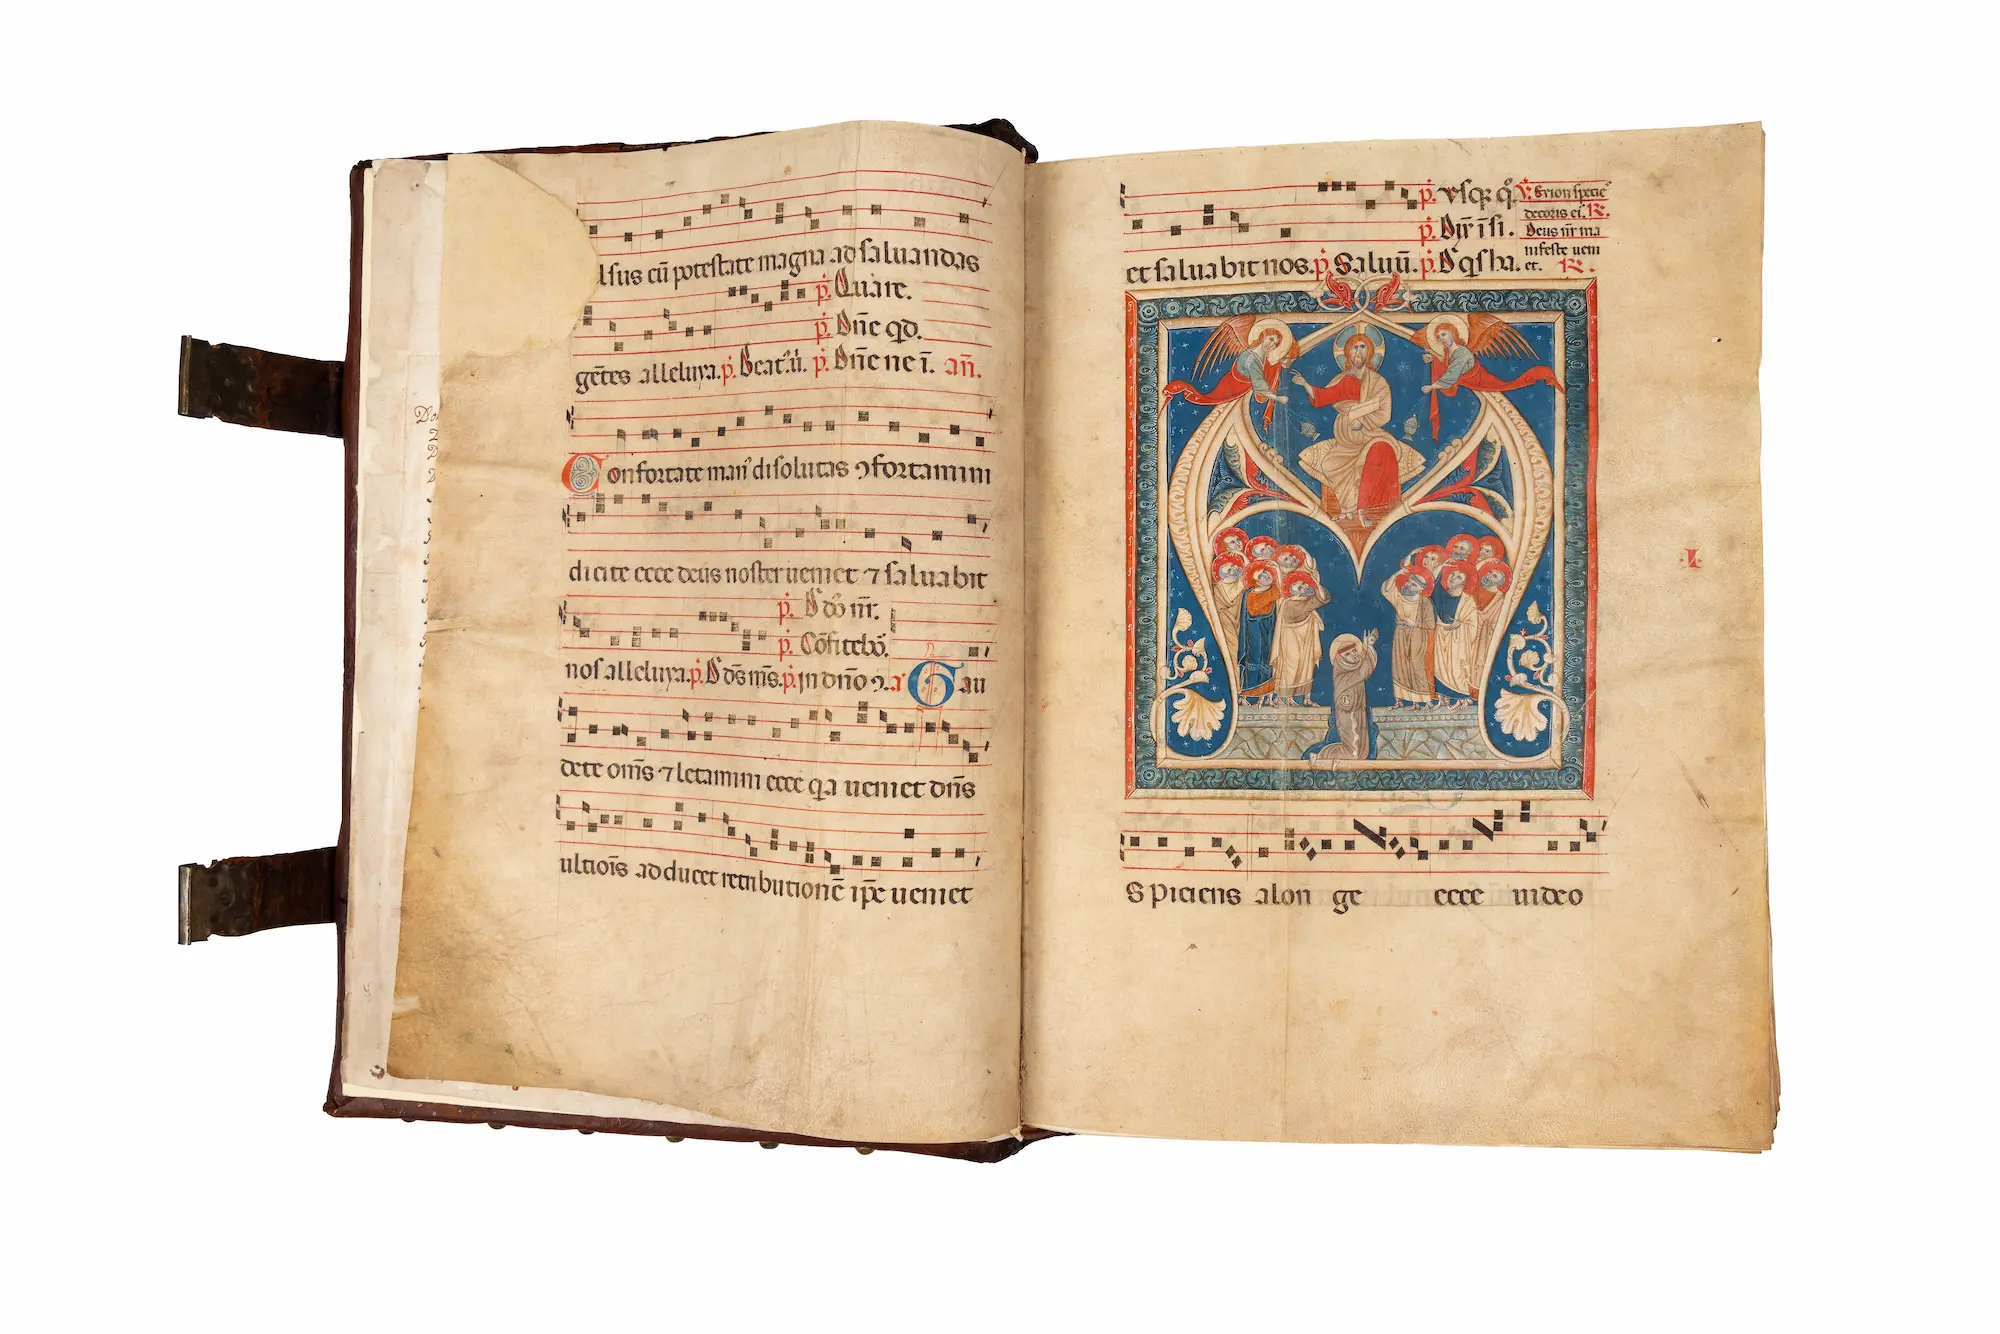 lsus cū potestate magna ad saluandas
p̄. Quare.
p̄. Dn̄e qd.
gētes alleluya. p̄. Beat'. ū. p̄. Dn̄e ne ī. an̄.
Confortate man' disolutas ꝯfortamini
dicite ecce deus noster ueniet ⁊ saluabit
p̄.
p̄. Cōfitebō.
nos alleluya. p̄. p̄. in dn̄o ꝯ. a Gau
dete om̄s ⁊ letamini ecce qa ueniet dn̄s
ultiōis adducet retributionē ip̄e ueniet
p̄. Vsq; qo ℣. Ex ion specie
decoris ei. ℟.
p̄. Deus nr̄ ma
nifeste ueni
et saluabit nos. p̄ Saluū. p̄. et. ℟.
Spiciens alonge ecce uideo